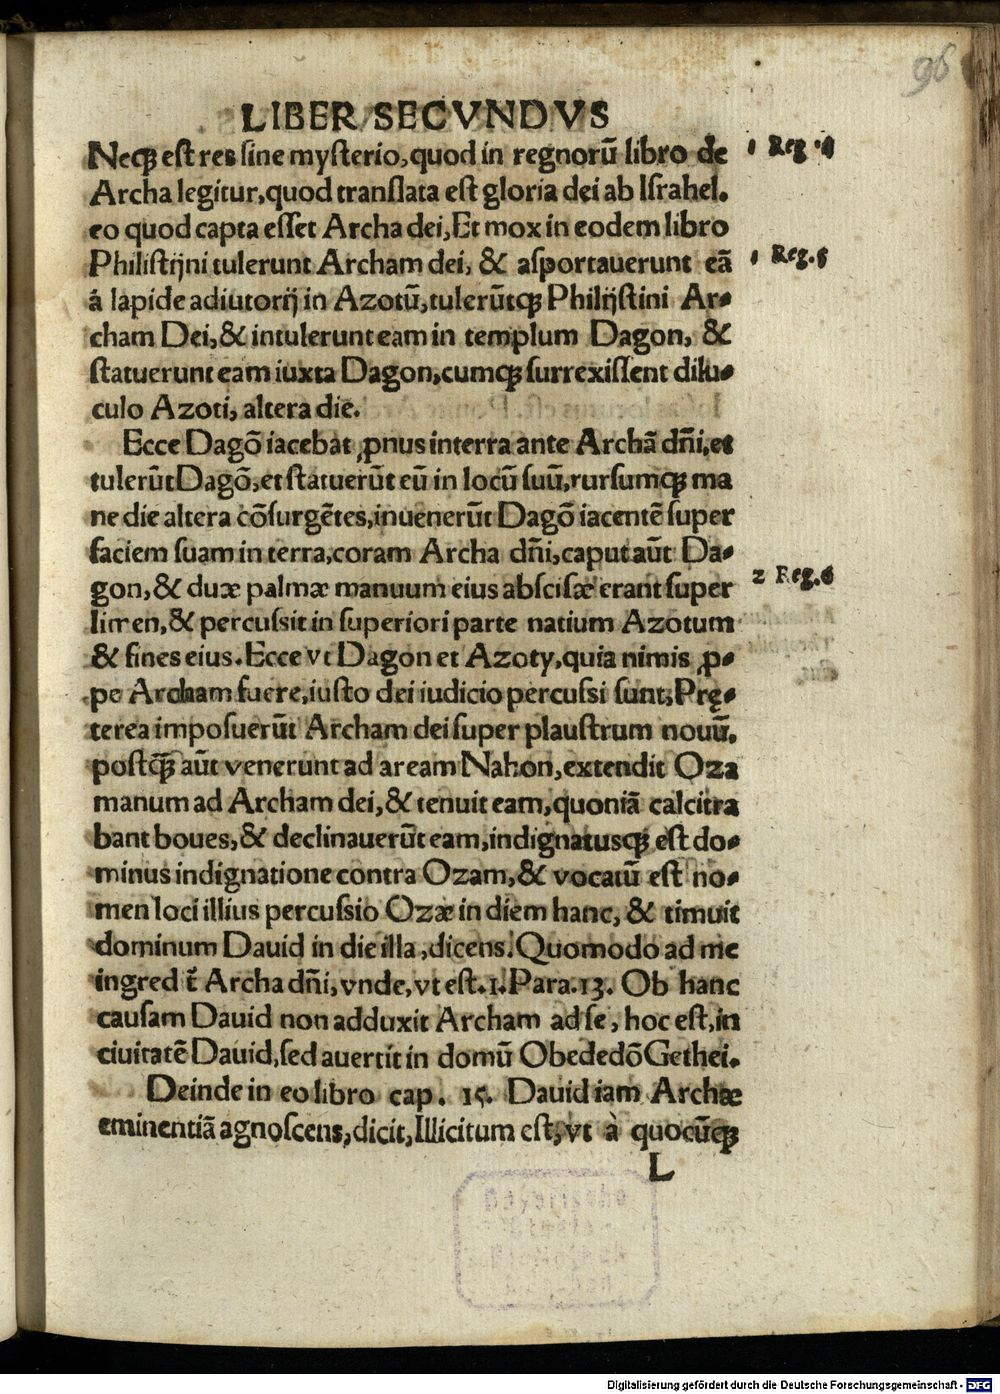 96
LIBER SECVNDVS
Necꝫ eſt res ſine myſterio,quod in regnorū libro de
1 Reg .4
Archa legitur,quod tranſlata eſt gloria dei ab Iſrahel.
eo quod capta eſſet Archa dei,Et mox in eodem libro
Philiſtijni tulerunt Archam dei, & aſportauerunt eā
1 Reg.5
á lapide adiutorij in Azotū,tulerūtqꝫ Philijſtini Ar-
cham Dei,& intulerunt eam in templum Dagon, &
ſtatuerunt eam iuxta Dagon,cumqꝫ ſurrexiſſent dilu-
culo Azoti, altera die.
Ecce Dagō iacebat ꝓnus interra ante Archā dn̄i,et
tulerūt Dagō,et ſtatuerūt eū in locū ſuū,rurſumqꝫ ma
ne die altera cōſurgētes,inuenerūt Dagō iacentē ſuper
faciem ſuam in terra,coram Archa dn̄i,caput aūt Da-
gon,& duæ palmæ manuum eius abſciſæ erant ſuper
2 Reg.6
limen,& percuſsit in ſuperiori parte natium Azotum
& fines eius.Ecce vt Dagon et Azoty,quia nimis ꝓ-
pe Archam fuere,iuſto dei iudicio percuſsi ſunt,Prę-
terea impoſuerūt Archam dei ſuper plauſtrum nouū.
poſtqꝫ̄ aūt venerunt ad aream Nahon,extendit Oza
manum ad Archam dei,& tenuit eam,quoniā calcitra
bant boues,& declinauerūt eam,indignatusqꝫ eſt do-
minus indignatione contra Ozam,& vocatū eſt no-
men loci illius percuſsio Ozæ in diem hanc, & timuit
dominum Dauid in die illa,dicens.Quomodo ad me
ingred t̄ Archa dn̄i,vnde,vt eſt.1.Para.13. Ob hanc
cauſam Dauid non adduxit Archam ad ſe, hoc eſt,in
ciuitatē Dauid,ſed auertit in domū Obededō Gethei.
Deinde in eo libro cap. 15. Dauid iam Archæ
eminentiā agnoſcens,dicit,Illicitum eſt,vt à quocūqꝫ
L
Digitalisierung gefördert durch die Deutsche Forschungsgemeinschaft - DFG